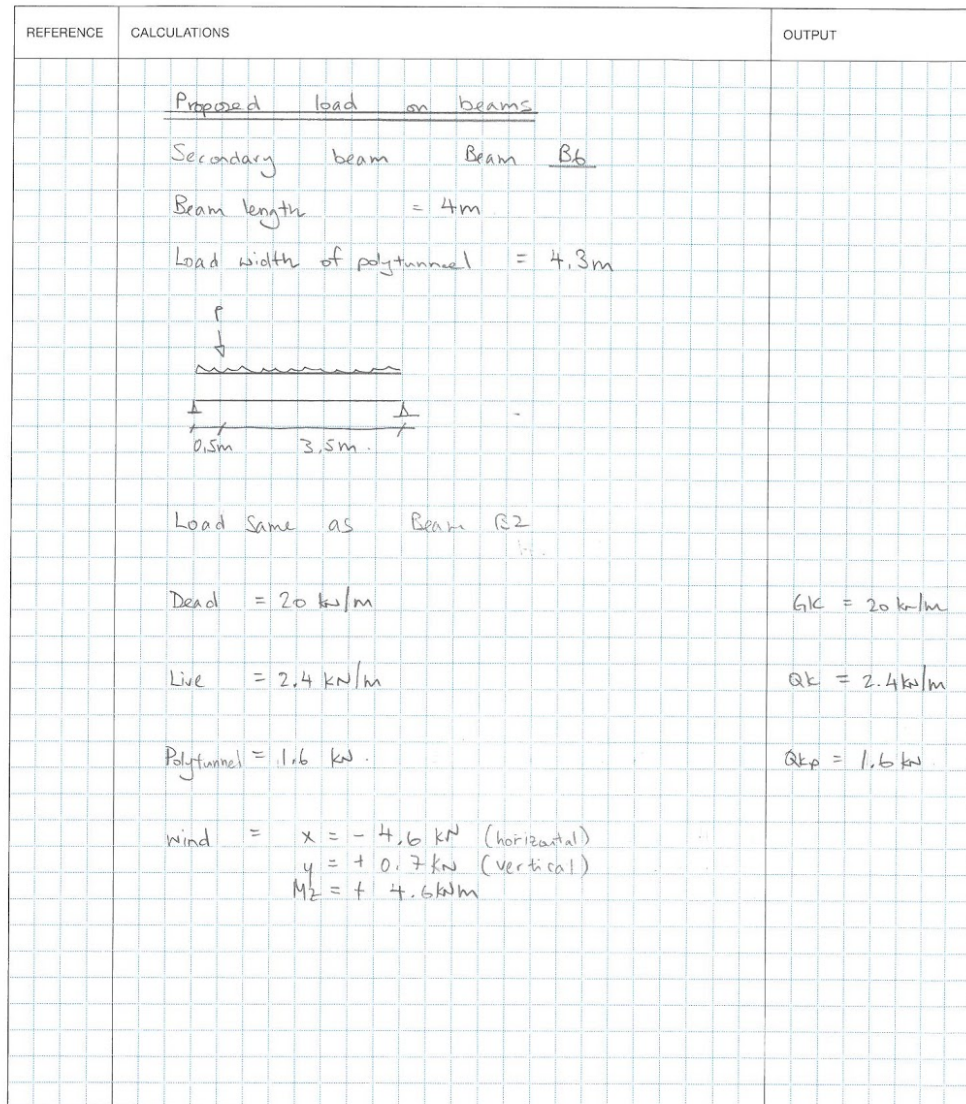 REFERENCE CALCULATIONS OUTPUT
Proposed load on beams
Secondary beam Beam B6
Beam length = 4m
Load width of polytunnel = 4.3m
P
0.5m 3.5m.
Load Same as Beam B2
Dead = 20 kN/m GK = 20 kN/m
Live = 2.4 kN/m Qk = 2.4 kN/m
Polytunnel = 1.6 kN. Qkp = 1.6 kN.
wind = x = - 4.6 kN (horizontal)
y = + 0.7 kN (vertical)
Mz = + 4.6 kNm